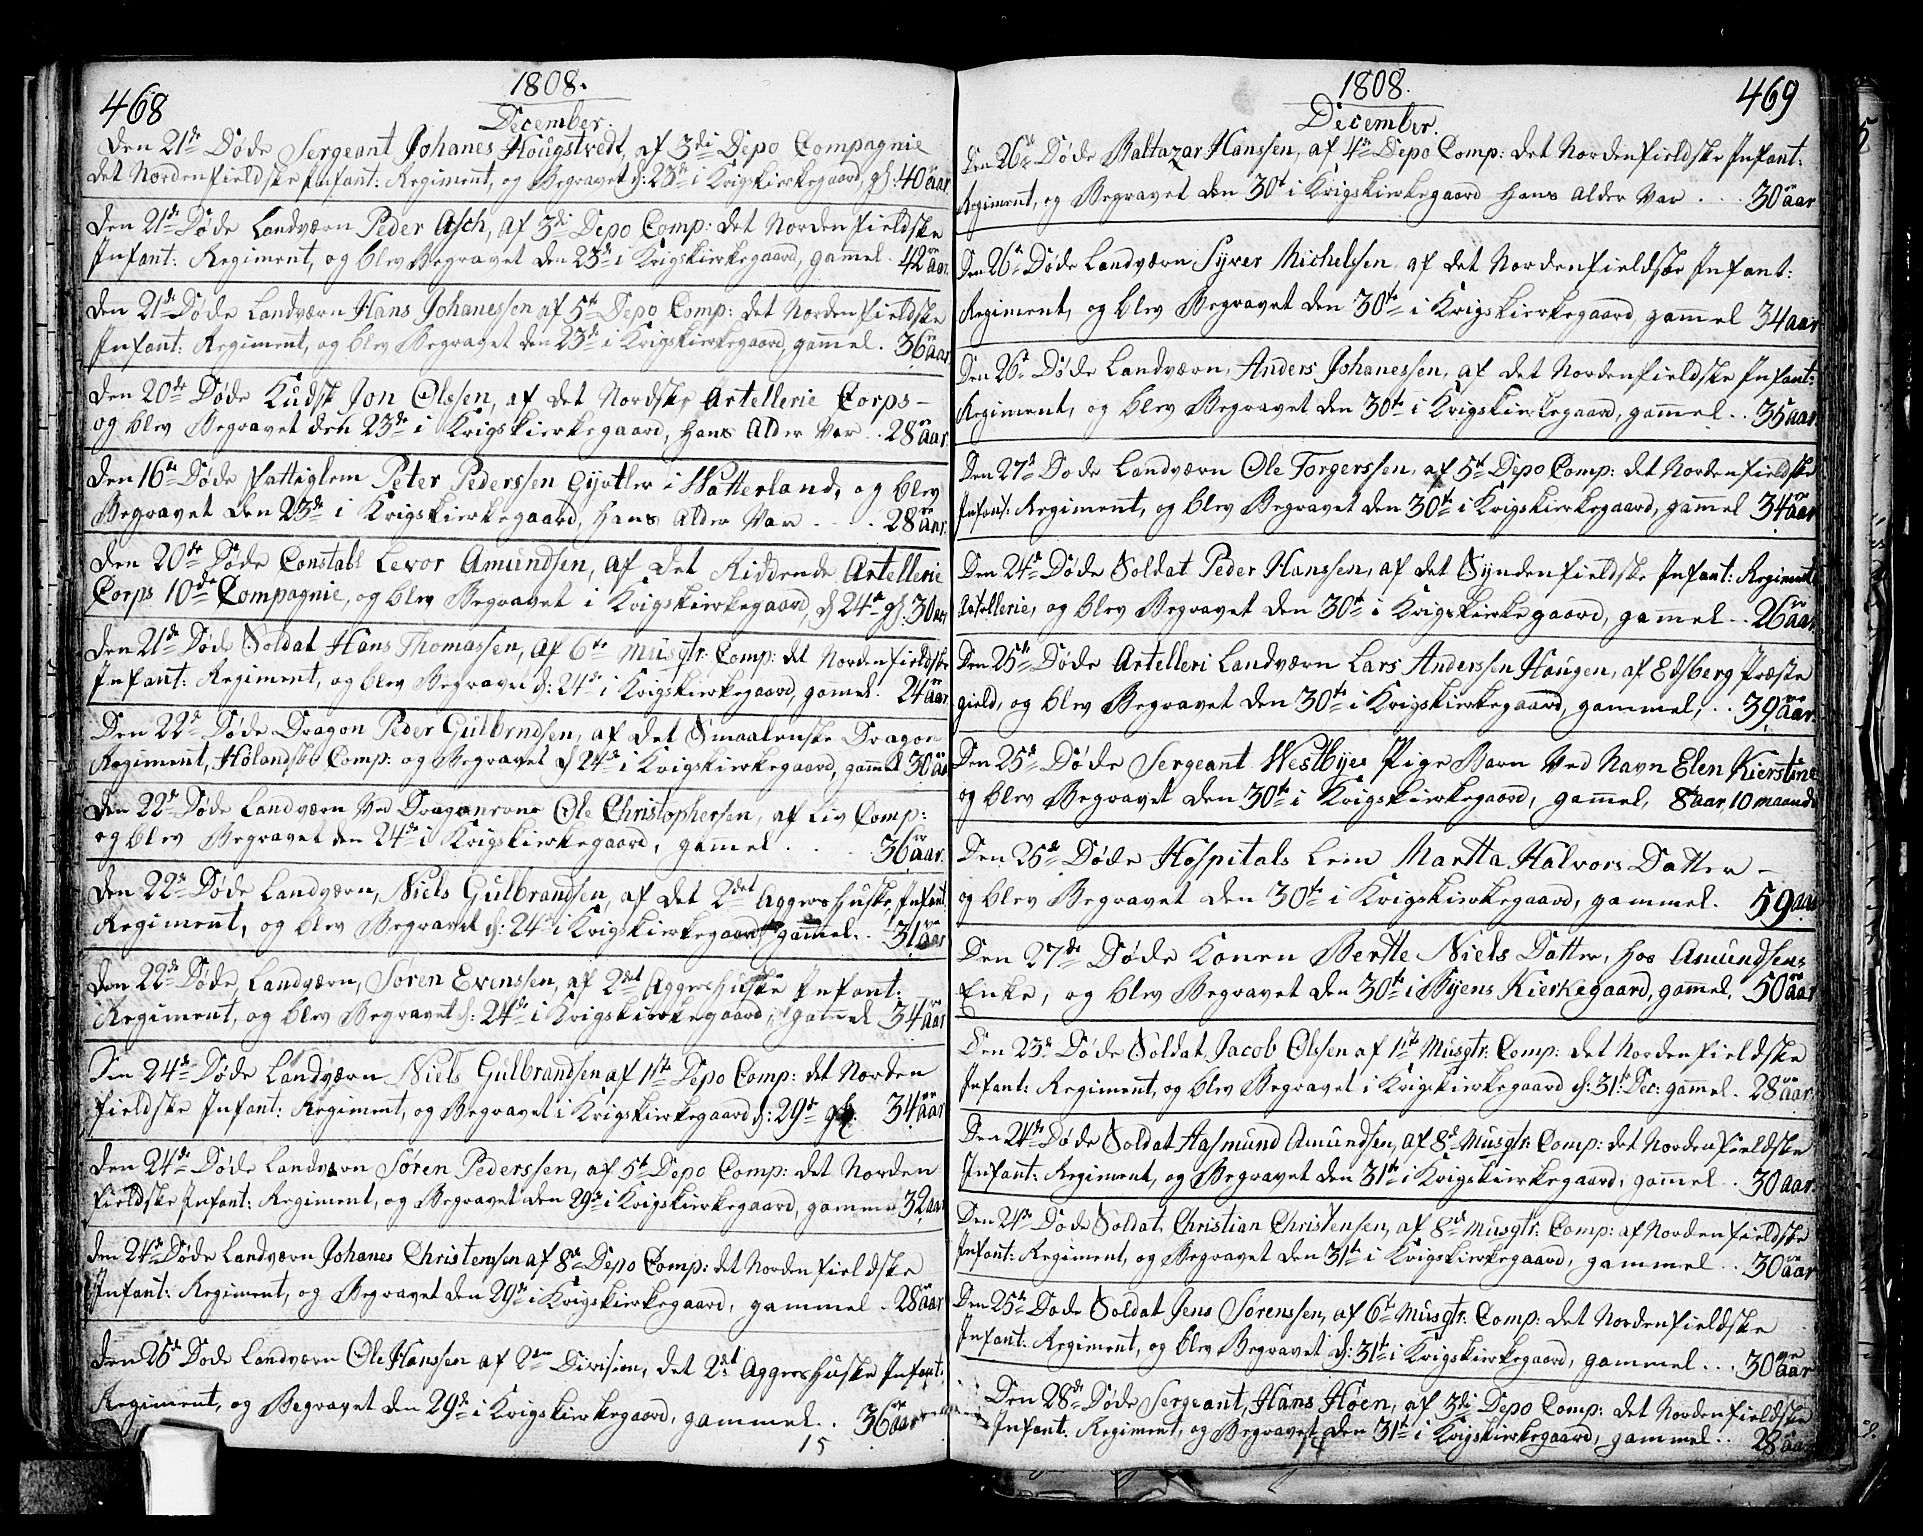 468
1808.
December.
Den 21de Døde Sergeant Johanes Hougstvedt, af 3di Depo Compagnie
det Nordenfieldske Infant: Regiment, og Begravet d: 23de i Krigskierkegaard, gl: 40 aar.
Den 21de Døde Landværn Peder Asch, af 3di Depo Comp: det Nordenfieldske
Infant: Regiment, og blev Begravet den 23de i Krigskierkegaard, gamel. 42 aar.
Den 21de Døde Landværn Hans Johanessen af 5te Depo Comp: det Nordenfieldske
Infant: Regiment, og blev Begravet den 23de i Krigskierkegaard, gamel. 36 aar.
Den 20de Døde Kudsk Jon Olssen, af det Nordske Artellerie Corps –
og blev Begravet den 23de i Krigskierkegaard, Hans Alder Var . . 28 aar.
Den 16de Døde Fattiglem Peter Pederssen Gjørtler i Watterland, og blev
Begravet den 23de i Krigskierkegaard, Hans Alder Var . . . 28 aar.
Den 20de Døde Constabl Levor Amundsen, af det Riddende Artellerie
Corps 10de Compagnie, og blev Begravet i Krigskierkegaard, d. 24de gl: 30 aar
Den 21de Døde Soldat Hans Thomassen, af 6te Musqtr: Comp: det Nordenfieldske
Infant: Regiment, og blev Begravet d: 24de i Krigskierkegaard, gamel. 24 aar.
Den 22de Døde Dragon Peder Gulbrndsen, af det Smaalenske Dragon
Regiment, Hølandske Comp: og Begravet d 24de i Krigskierkegaard, gammel 30 aar
Den 22de Døde Landværn Ved Dragonrone Ole Christophersen, af Liv Comp:
og blev Begravet den 24de i Krigskierkegaard, gamel . . 36 aar.
Den 22de Døde Landværn, Niels Gulbrandsen, af det 2det Aggershuske Infant
Regiment, og blev Begravet d: 24de i Krigskierkegaard gammel. . 31 aar
Den 22de Døde, Landværn, Søren Evenssen, af 2det Aggershuske Infant:
Regiment, og blev Begravet d: 24de i Krigskierkegaard, gammel 34 aar
Den 24de Døde Landværn Niels Gulbrandsen af 1ste Depo Comp: det Norden
fieldske Infant: Regiment, og Begravet i Krigskierkegaard d: 29de gl. 34 aar
Den 24de Døde Landværn Søren Pederssen, af 5te Depo Comp: det Norden
fieldske Infant: Regiment, og Begravet den 29de i Krigskierkegaard, gamme 32 aar
Den 24de Døde Landværn Johanes Christensen af 8de Depo Comp: det Nordenfieldske
Infant: Regiment, og Begravet den 29de i Krigskierkegaard, gammel . 28 aar
Den 25de Døde Landværn Ole Hanssen af 2den Division, det 2det Aggershuske Infant.
Regiment, og Begravet den 29de i Krigskierkegaard, gammel. . 36 aar
15
469
1808.
December.
Den 26de Døde Baltazar Hanssen, af 4de Depo Comp: det Nordenfieldske Infant:
Regiment, og Begravet den 30te i Krigskierkegaard Hans Alder Var . . . 30 aar
Den 26de Døde Landværn Syver Michelsen af det Nordenfieldske Infant:
Regiment, og blev Begravet den 30te i Krigskierkegaard, gammel 34 aar
Den 26de Døde Landværn, Anders Johanessen, af det Nordenfieldske Infant:
Regiment, og blev Begravet den 30te i Krigskierkegaard, gammel . . 35 aar.
Den 27de Døde Landværn Ole Torgerssen, af 5te Depo Comp: det Nordenfieldske
Infant: Regiment, og blev Begravet den 30te i Krigskierkegaard, gammel 34 aar
Den 24de Døde Soldat Peder Hanssen, af det Syndenfieldske Infant: Regiment
Artellerie, og blev Begravet den 30te i Krigskierkegaard, gamel . . 26 aar.
Den 25de Døde Artelleri Landværn Lars Anderssen Haugen, af Edsberg Præste
gield, og blev Begravet den 30te i Krigskierkegaard, gammel, . . 39 aar.
Den 25de Døde Sergeant Westbyes Pige Barn Ved Navn Elen Kierstine
og blev Begravet den 30te i Krigskierkegaard, gammel, 8 aar, 10 maande
Den 25de Døde Hospitals Lem Martta Halvors Datter –
og blev Begravet den 30te i Krigskierkegaard, gammel. 59 aar
Den 27de Døde Konen Bertte Niels Datter, hos Amundsens
Enke, og blev Begravet den 30te i Byens Kierkegaard, gammel, 50 aar
Den 23de Døde Soldat Jacob Olssen af 1ste Musqtr: Comp: det Nordenfieldske
Infant: Regiment, og blev Begravet i Krigskierkegaard d: 31te Dec: gamel . 28 aar.
Den 24de Døde Soldat Aasmund Amundsen, af 8de Musqtr: Comp: det Nordenfieldske
Infant: Regiment, og Begravet den 31te i Krigskierkegaard, gamel . . 30 aar.
Den 24de Døde Soldat Christian Christensen, af 8de Musqtr: Comp: af Nordenfieldske
Infant: Regiment, og Begravet den 31te i Krigskierkegaard, gammel . . 30 aar
Den 25de Døde Soldat Jens Sørenssen, af 6te Musqtr: Comp: det Nordenfieldske
Infant: Regiment, og blev Begravet d: 31te i Krigskierkegaard, gammel . . . 30 aar
Den 28de Døde Sergeant, Hans Høen, af 3di Depo Comp: det Nordenfieldske
Infant. Regiment, og Begravet den 31te i Krigskierkegaard, gammel . . 28 aar
14